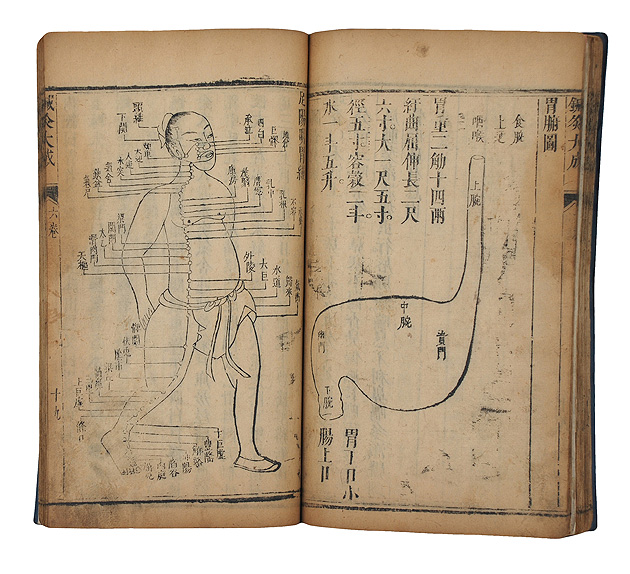 鍼灸大成
胃腑圖
食脘
上走
咽喉
胃重二觔十四兩
紆曲屈伸長二尺
六寸大一尺五寸
徑五寸容穀二斗
水一斗五升
上脘
中脘
賁門
幽門
下脘
胃下口小
腸上口
足陽明胃經
地倉
巨髎
四白
承泣
頭維
下關
頰車
大迎
人迎
水突
氣舍
缺盆
氣戶
庫房
膺窗
乳中
乳根
不容
梁門
關門
太乙
滑肉門
天樞
外陵
大巨
水道
歸來
氣衝
髀關
伏兔
陰市
上巨虛
條口
下巨虛
豐隆
解谿
衝陽
陷谷
內庭
厲兌
鍼灸大成
六卷
十九